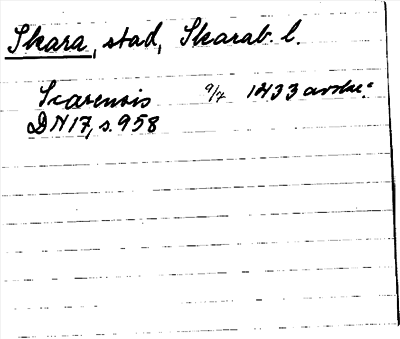 Skara, stad, Skarab. l.
Scarensis 9/7 1433 avskr.
DN 17, s. 958